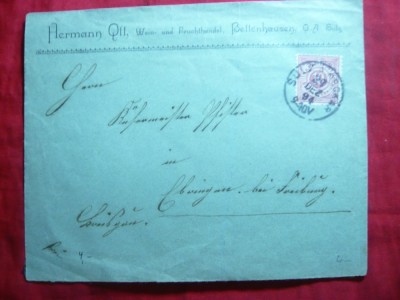 Hermann Ott, Wein- und Fruchthandel, Bettenhausen, O/A Sulz.
SULZ
DEZ
94
Herrn
Küfermeister Pfister
in
Ebringen bei Freiburg
Breisgau.